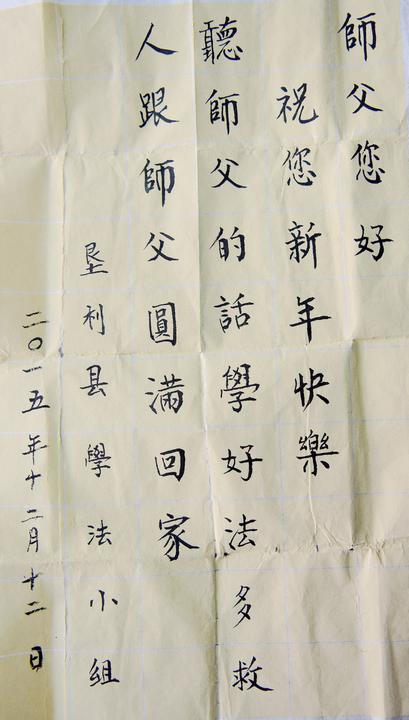 師父您好
祝您新年快樂
聽師父的話學好法多救
人跟師父圓滿回家
垦利县學法小組
二〇一五年十二月十二日